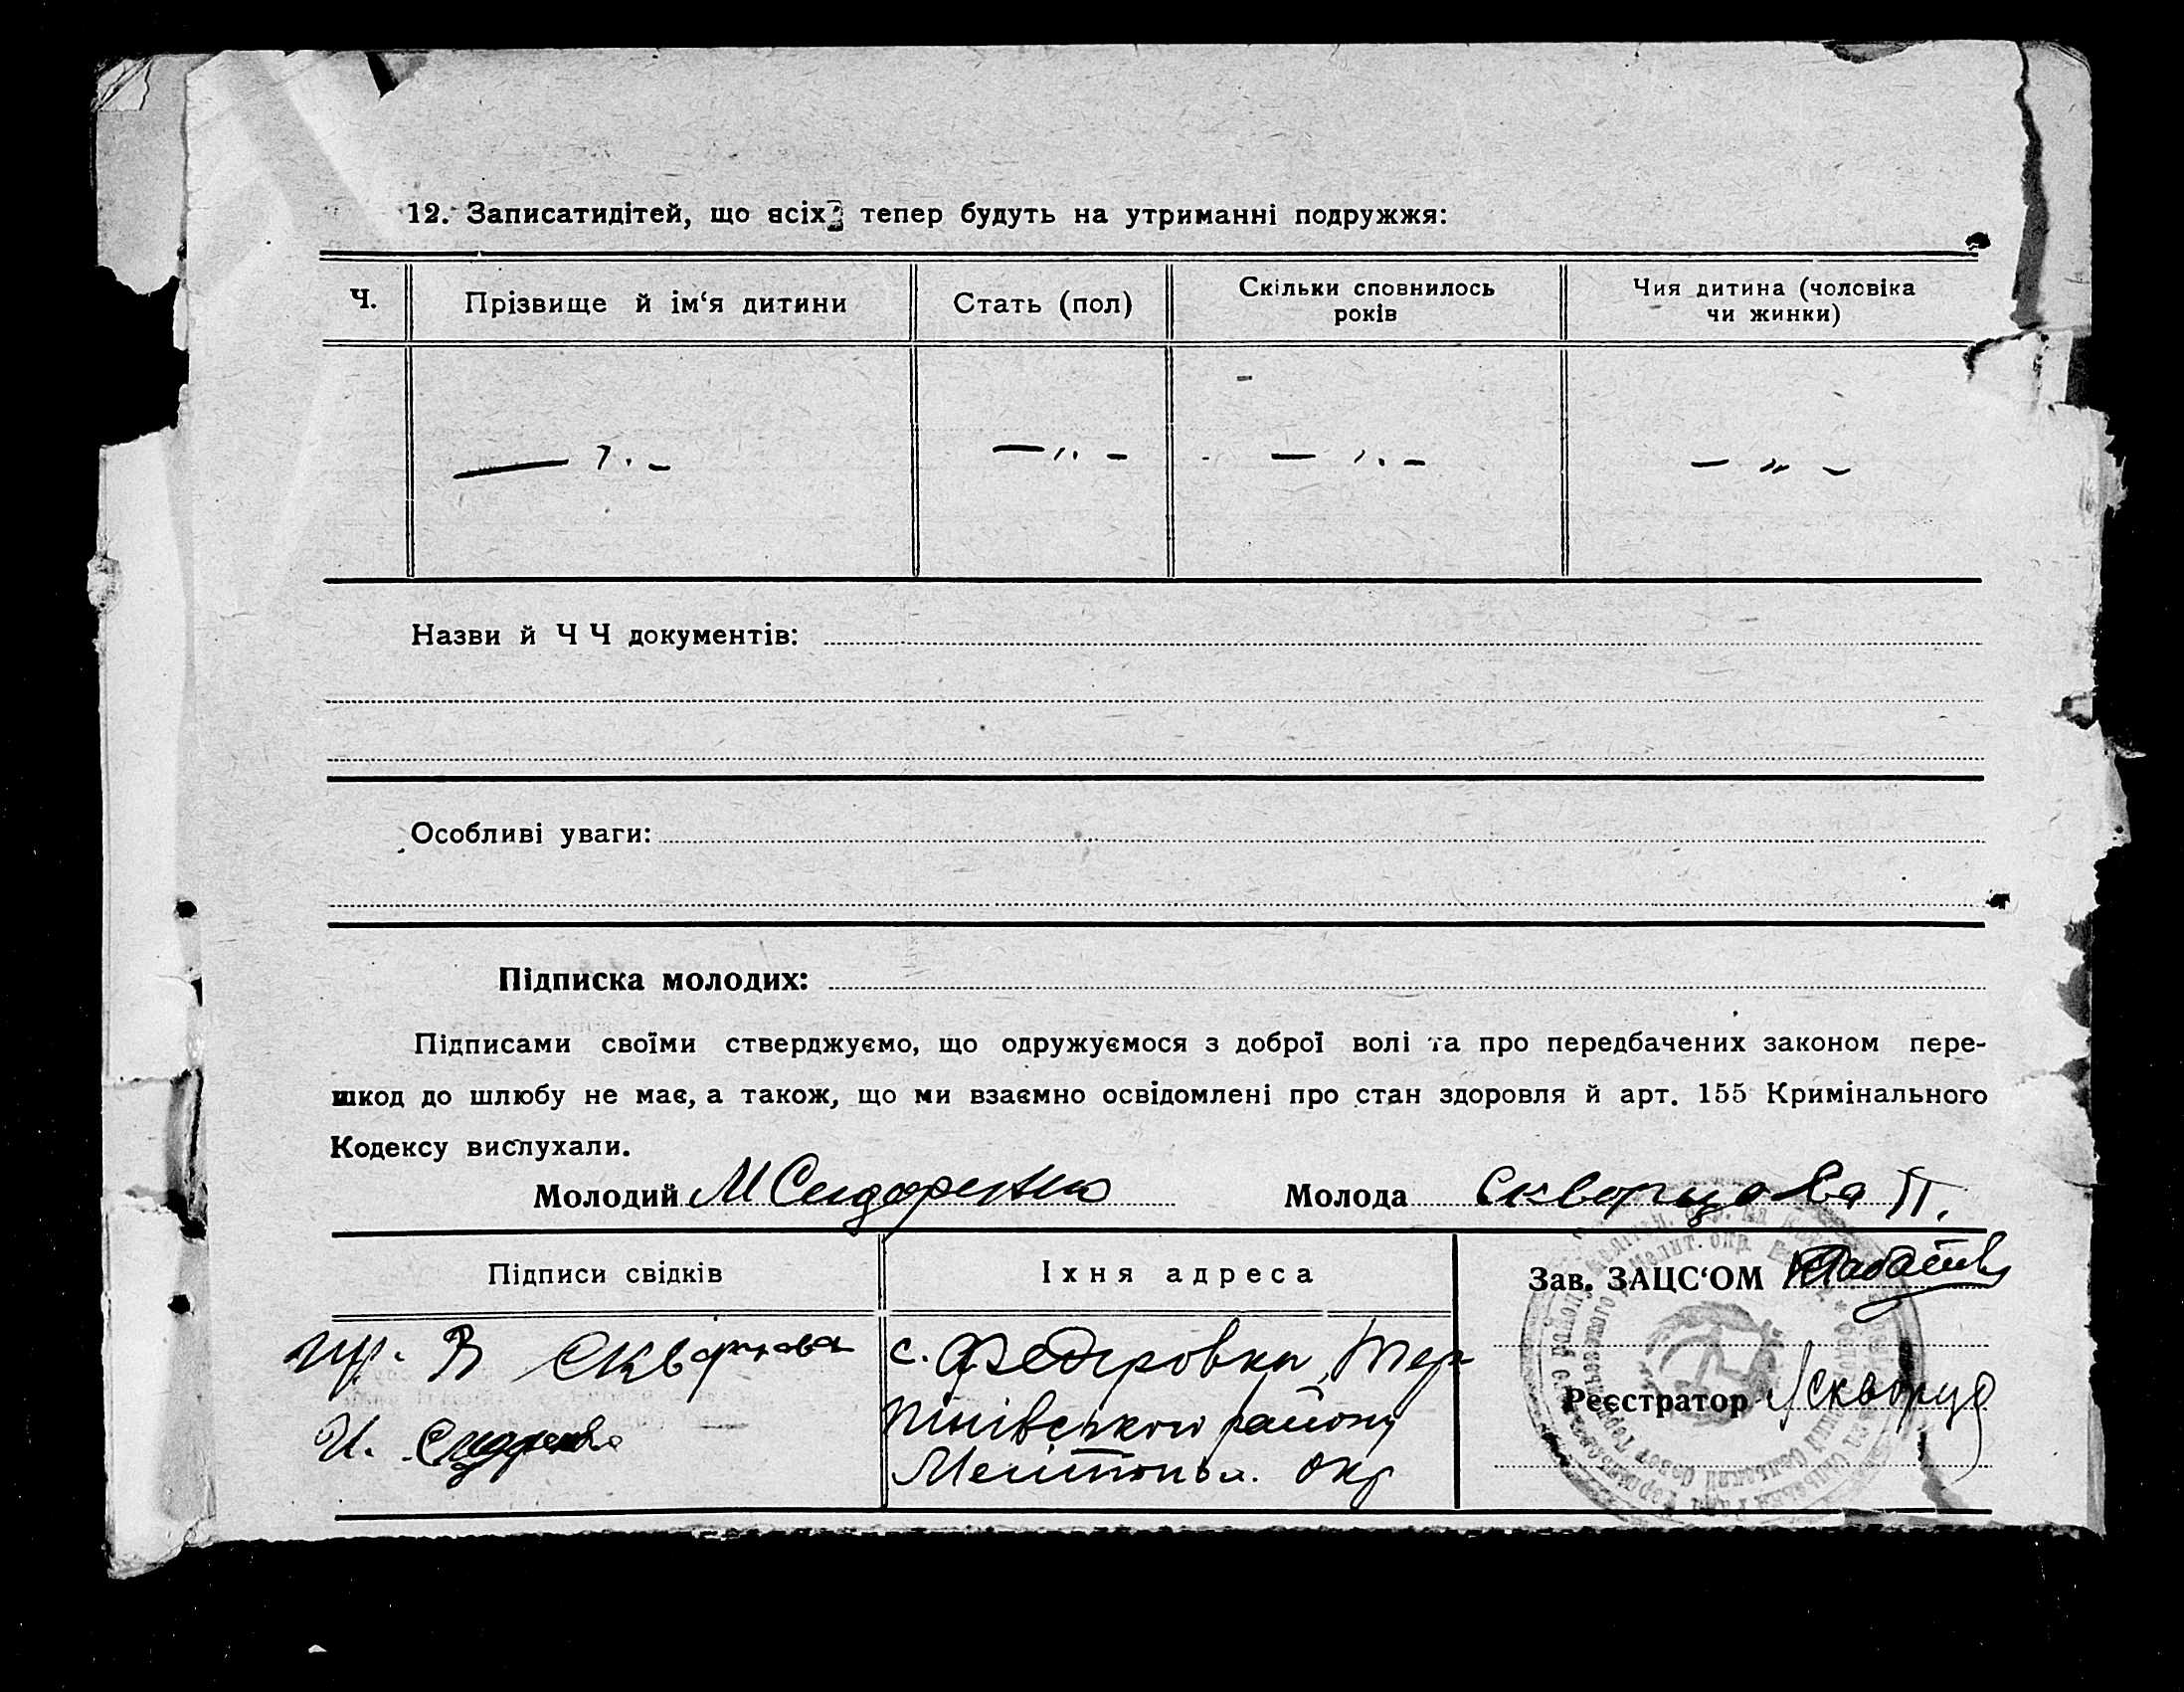 12. Записатидітей, що всіх тепер будуть на утриманні подружжя:
Ч.
Прізвище й ім‘я дитини
Стать (пол)
Скільки сповнилось
років
Чия дитина (чоловіка
чи жинки)
— „ —
— „ —
— „ —
— „ —
Назви й Ч Ч документів:
Особливі уваги:
Підписка молодих:
Підписами своїми стверджуємо, що одружуємося з доброї волі та про передбачених законом пере-
шкод до шлюбу не має, а також, що ми взаємно освідомлені про стан здоровля й арт. 155 Кримінального
Кодексу вислухали.
Молодий М Сидоренко
Молода Скворцова П.
Підписи свідків
Іхня адреса
Зав. ЗАЦС‘ОМ
В Скворцова
И. Сидоренко
с. Федоровка, Тер
пінівського району
Мелітопол. окр
Реєстратор Скворцо